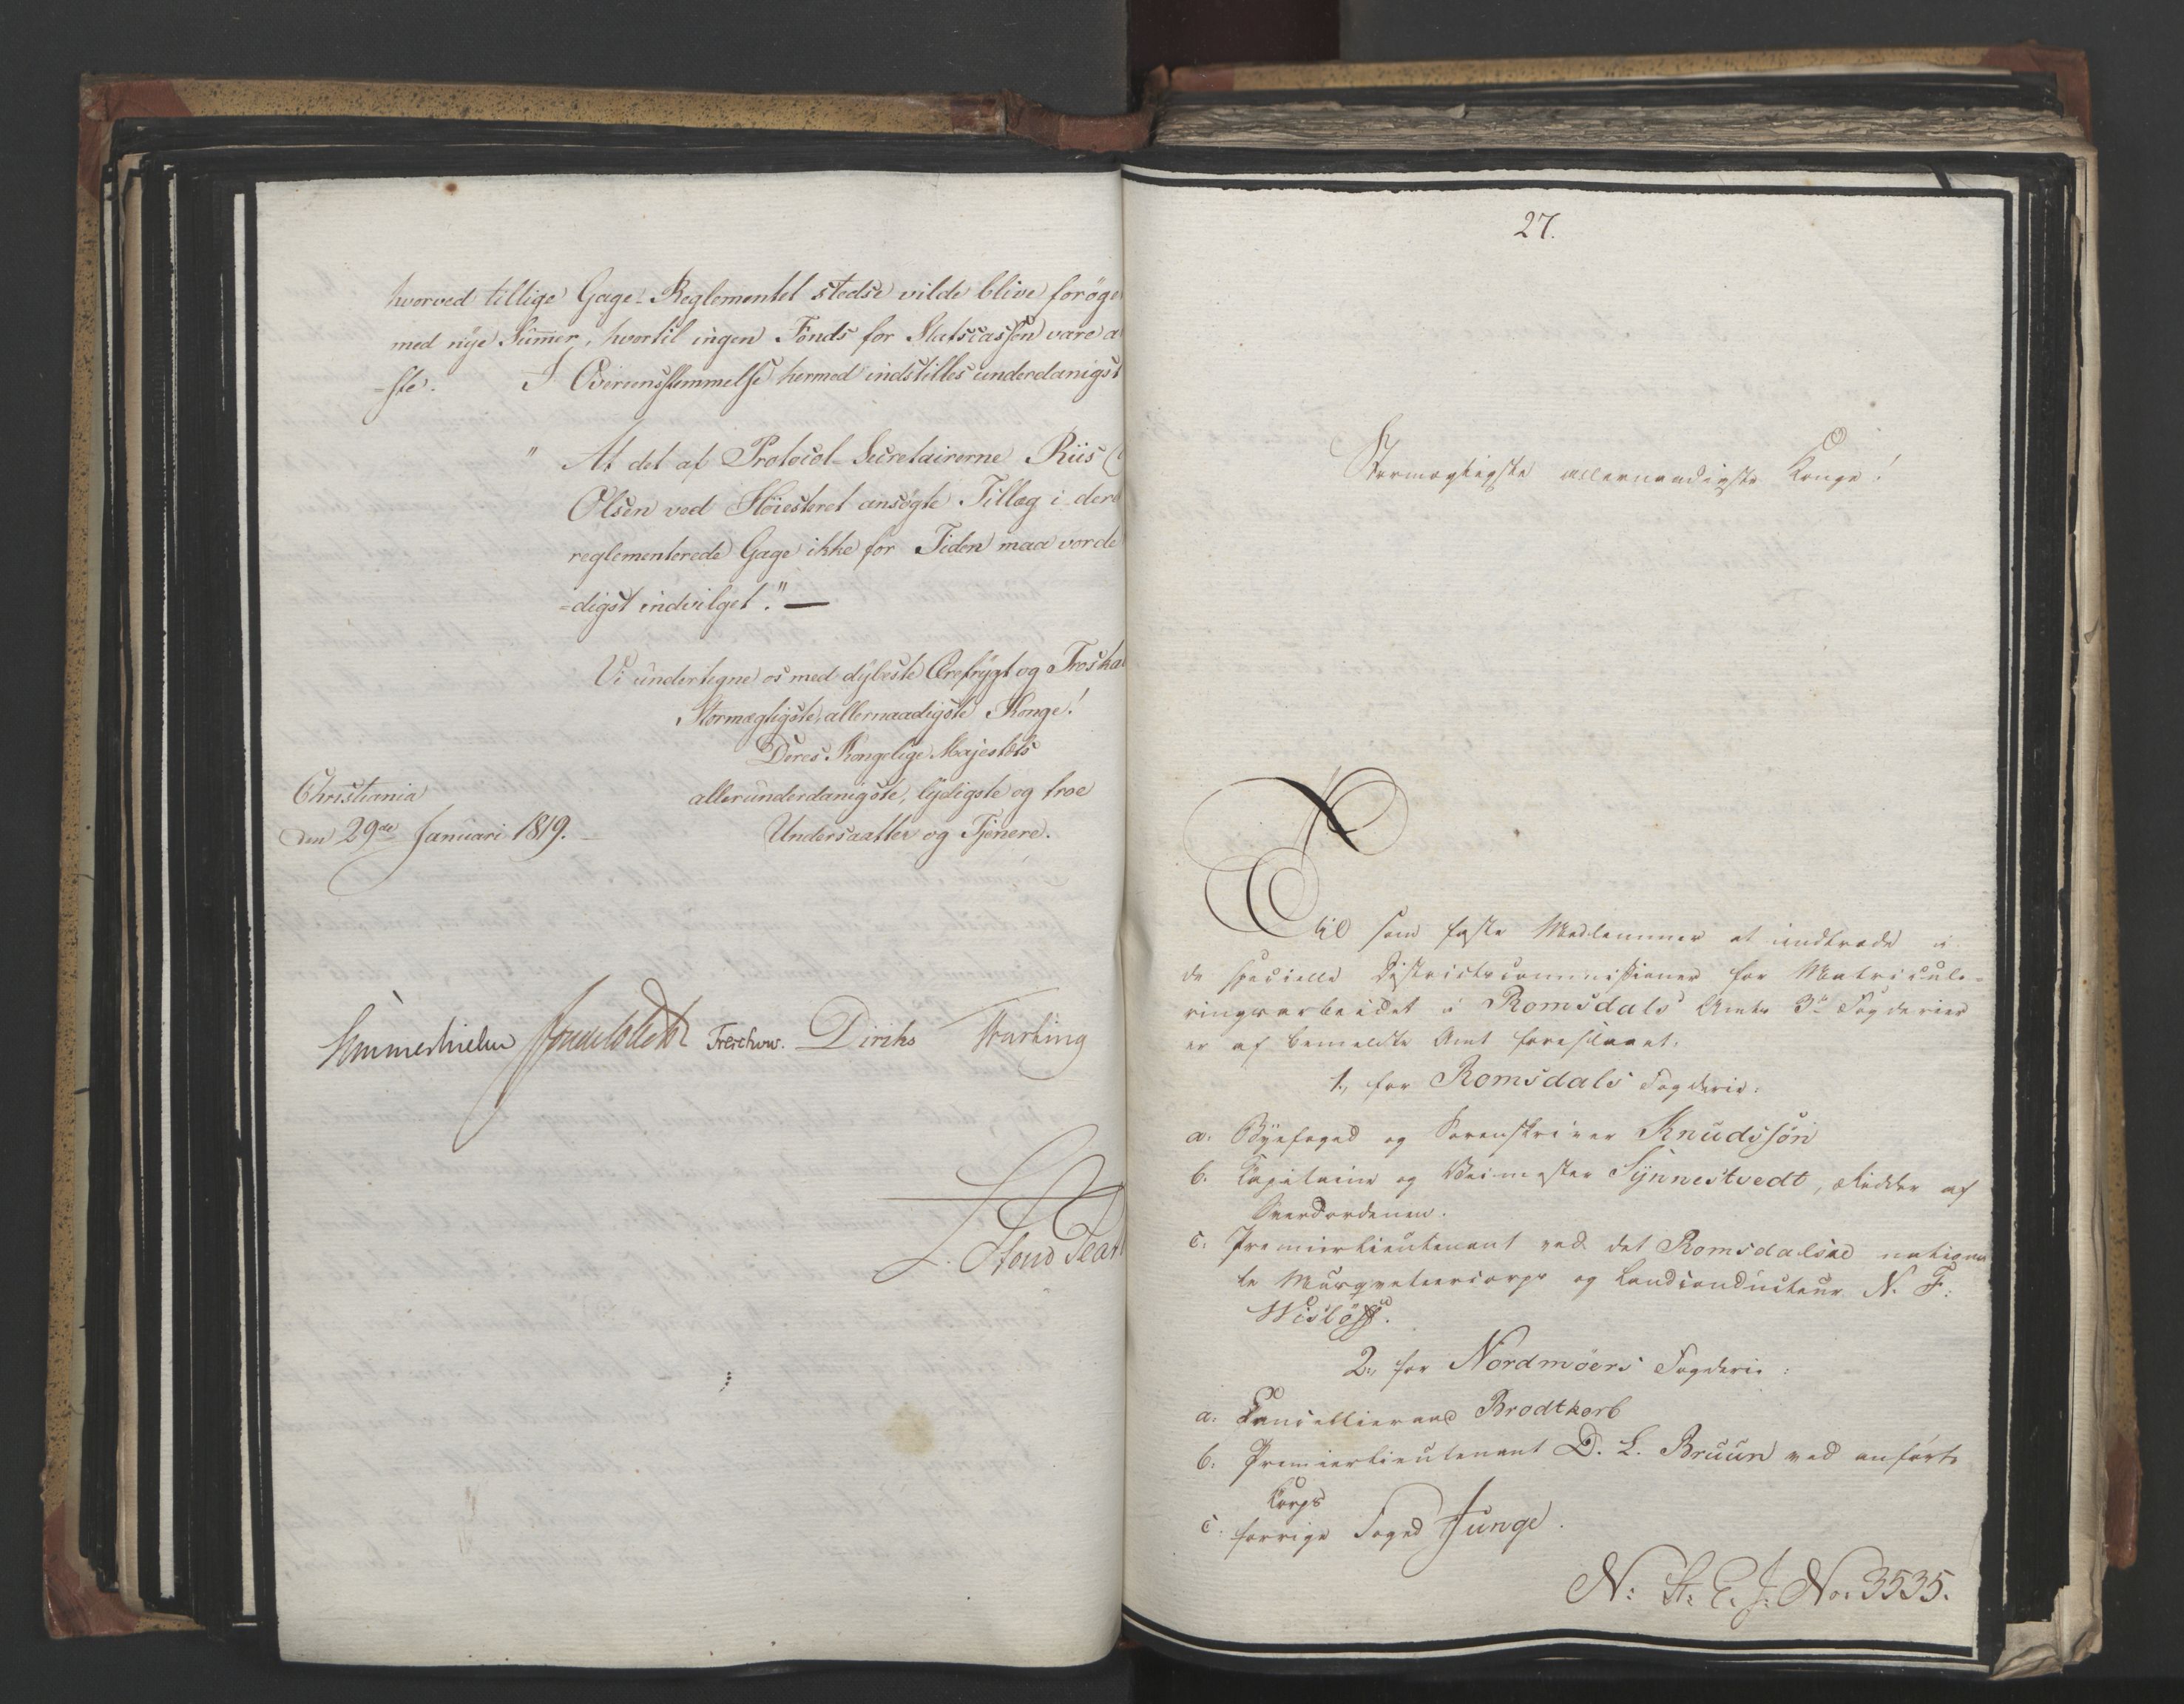 hvorved tillige Gage-Reglementet stedse vilde blive forøge
med nye Summer, hvortil ingen Fonds for Statscassen vare a
=ste. I Overeensstemmelse hermed indstilles underdanigst
" At det af Protocol-Secretairerne Riis
Olsen ved Høiesteret ansøgte Tillæg i dere
reglementerede Gage ikke for Tiden maa vorde
=digst indvilget." —
Vi undertegne os med dybeste Ærefrygt og Troska
Stormægtigste, allernaadigste Konge!
Deres Kongelige Majestæts
Christiania
allerunderdanigste, lydigste og troe
den 29de Januari 1819.
Undersaatter og Tjenere.
Sommerhielm Treschow. Diriks
L.
27.
Stormægtigste allernaadigste Konge!
Til som faste Medlemmer at indtræde i
de specielle Districtscommissioner for Matricule=
ringsarbeidet i Romsdals Amts 3de Fogderier
er af bemeldte Amt foreslaaet.
1, for Romsdals Fogderie:
a. Byefoged og Sorenskriver Knudssøn
b. Capitaine og Veimester Synnestvedt, Ridder af
Sværdordenen.
c. Premierlieutenant ved det Romsdalske nationa
le Musqueteercorps og Landconducteur N. F.
Wisløff.
2, for Nordmøers Fogderie:
a. Cancellieraad Brodtkorb
b. Premierlieutenant D. L. Bruun ved anførte
Corps
c. forrige Foged Junge.
N: St: C. J: No. 3535.